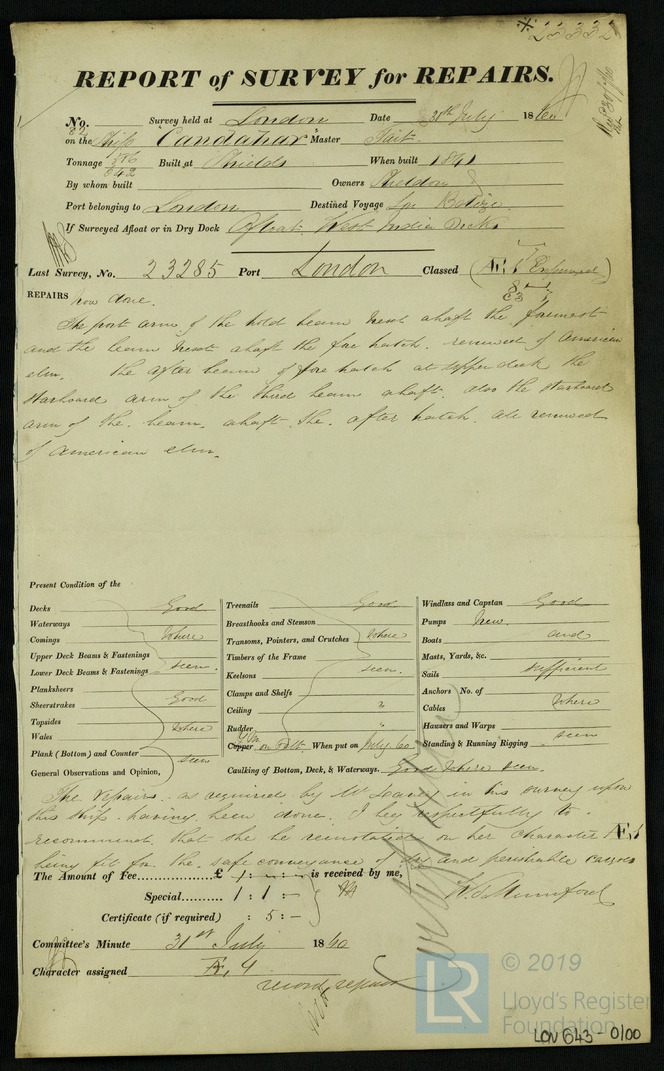 23332
REPORT of SURVEY for REPAIRS.
No. 82 Survey held at London Date 30th July 1860
on the Ship Candahar Master Tait
Tonnage 376 642 Built at Shields When built 1841
By whom built Owners Sheddon
Port belonging to London Destined Voyage for Belize
If Surveyed Afloat or in Dry Dock Afloat West India Docks
Last Survey, No. 23285 Port London Classed (Æ, 1 Expunged)
REPAIRS now done.
The port arm of the hold beam next abaft the foremost
and the beam next abaft the fore hatch. renewed of American
elm. The after beam of fore hatch at upper deck the
starboard arm of the third beam abaft. also the starboard
arm of the. beam. abaft. the. after hatch. all renewed
of American elm.
Present Condition of the
Decks Good
Waterways
Comings where
Upper Deck Beams & Fastenings
Lower Deck Beams & Fastenings seen.
Planksheers
Sheerstrakes Good
Topsides
Wales where
Plank (Bottom) and Counter seen
General Observations and Opinion,
Treenails Good
Breasthooks and Stemson
Transoms, Pointers, and Crutches where
Timbers of the Frame
Keelsons seen.
Clamps and Shelfs
Ceiling "
Rudder "
Copper Y.M. on Felt When put on July 60
Caulking of Bottom, Deck, & Waterways. Good where seen.
Windlass and Capstan Good
Pumps New.
Boats and
Masts, Yards, &c.
Sails sufficient
Anchors No. of
Cables where
Hawsers and Warps
Standing & Running Rigging seen
The repairs. as required by Mr in his survey upon
this ship. having been done. I beg respectfully to.
recommend. that she be reinstated on her character Æ, 1
being fit for. the. safe conveyance of dry and perishable cargoes
The Amount of Fee £ is received by me,
Special 1 : 1 : -
Certificate (if required) : 5 : -
W. S. Mumford
Committee's Minute 31st July 1860
Character assigned Æ, 1
record repairs
© 2019
Lloyd's Register
Foundation
LR
LON 643-0100